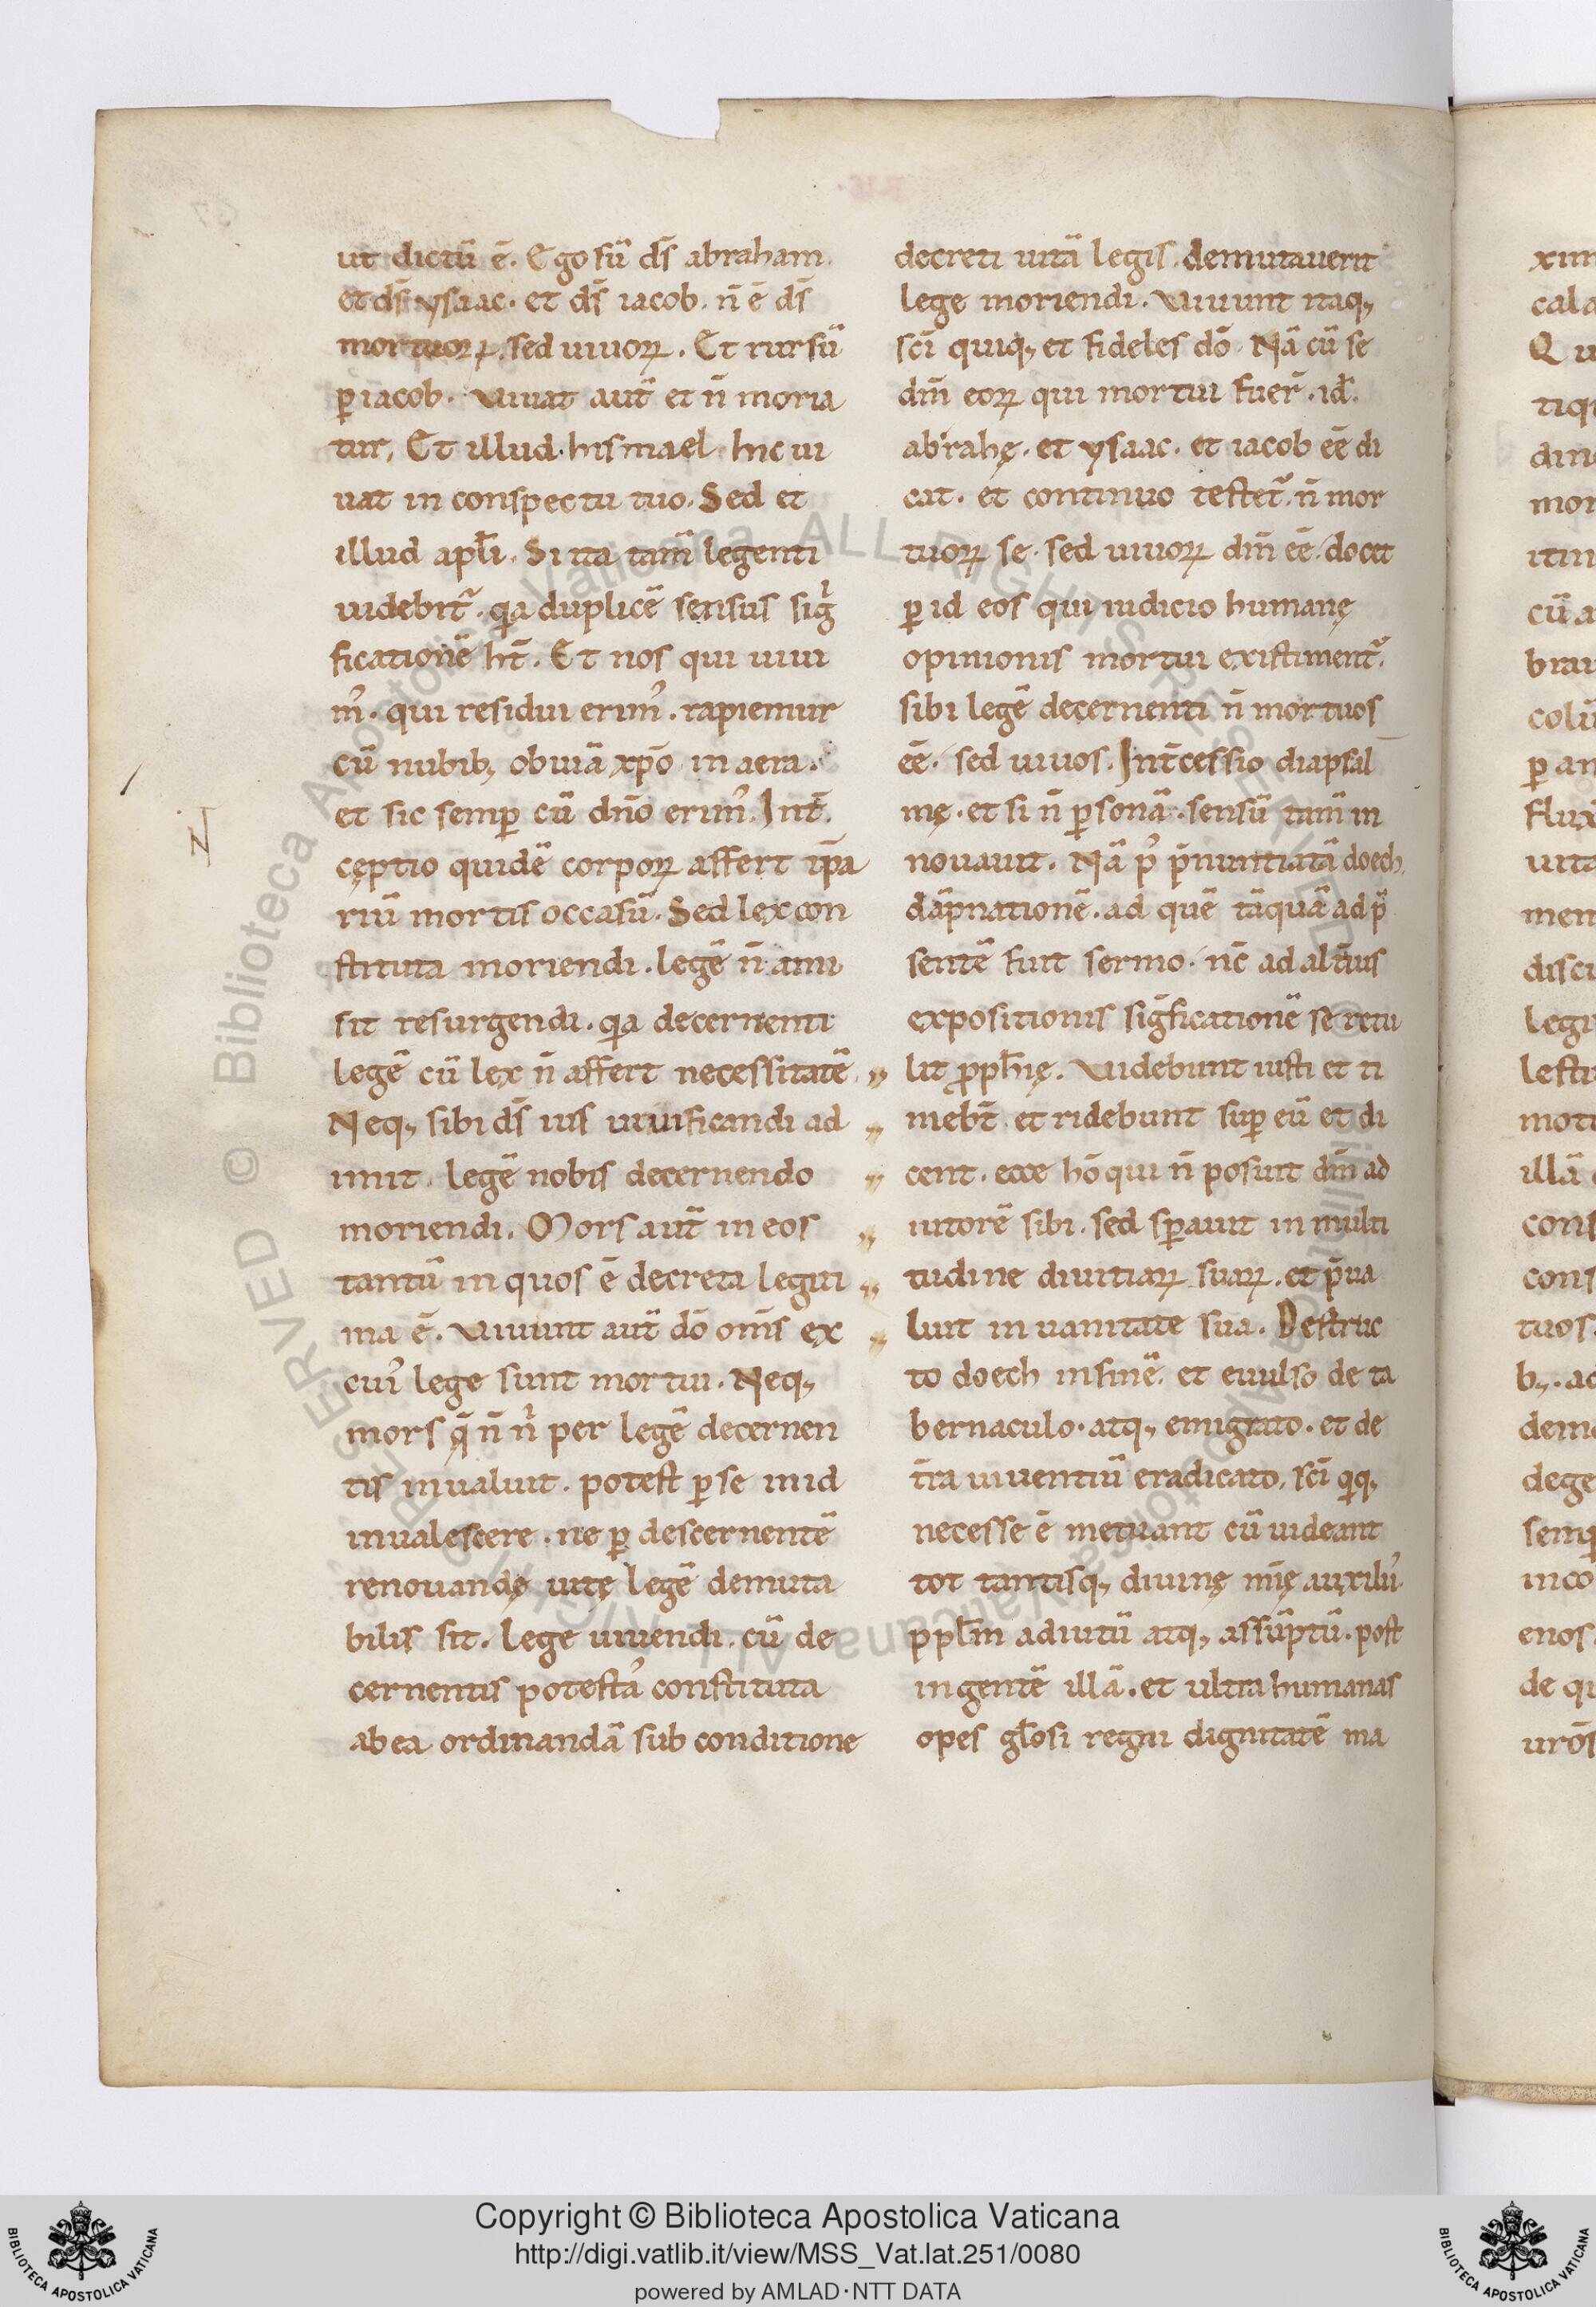 ut dictū ē. Ego sū ds̄ abraham
et ds̄ ysaac. et ds̄ iacob. n̄ ē ds̄
mortuoꝝ. sed uiuoꝝ. Et rursū
ꝑ iacob. Viuat aut̄ et n̄ moria
tur. Et illud. hismael hic ui
uat in conspectu tuo. Sed et
illud apl̄i. Si ita tam̄ legenti
uidebit᷑. q̇a duplicē sensus sigͥ
ficationē ht̄. Et nos qui uiui
mꝰ. qui residui erimꝰ. rapiemur
cū nubibꝫ obuiā xp̄o in aera.
et sic semꝑ cū dn̄o erimꝰ. Int̄
cęptio quidē corpoꝝ affert īpa
riū mortis occasū. Sed lex con
stituta moriendi. legē n̄ ami
sit resurgendi. q̇a decernenti
legē cū lex n̄ affert necessitatē.
Neqꝫ sibi ds̄ ius uiuificandi ad
imit. legē nobis decernendo
moriendi. Mors aut̄ in eos
tantū in quos ē decreta legiti
ma ē. Viuunt aut̄ dō om̄s ex
cuiꝰ lege sunt mortui. Neqꝫ
mors q̄ n̄ nͥ per legē decernen
tis inualuit. potest ꝑ se in id
inualescere. ne ꝑ descernentē
renouandę uitę legē demuta
bilis sit. lege uiuendi. cū de
cernentis potestaꝰ constituta
ab ea ordinandā sub conditione
decreti uitā legis. demutauerit
lege moriendi. Viuunt itaqꝫ
sc̄i quiqꝫ et fideles dō. Nā cū se
dm̄ eoꝝ qui mortui fuer̄. id.̄
abrahę. et ysaac. et iacob ēē di
cat. et continuo testet᷑. n̄ mor
tuoꝝ se. sed uiuoꝝ dm̄ ēē. docet
ꝑ id eos qui iudicio humanę
opinionis mortui existiment᷑.
sibi legē decernenti n̄ mortuos
ēē. sed uiuos. Int̄cessio diapsal
mę. et si n̄ ꝑsonā. sensū tam̄ in
nouauit. Nā pꝰ p̄nuntiatā doech
dāpnationē. ad quē tāquā ad p̄
sentē fuit sermo. nc̄ ad alt̄ius
expositionis siḡficationē se retu
lit ꝓph̄ię. Videbunt iusti et ti
mebt̄ et ridebunt suꝑ eū et di
cent. ecce hō qui n̄ posuit dm̄ ad
iutorē sibi. sed sꝑauit in multi
tudine diuitiaꝝ suaꝝ. et p̄ua
luit in uanitate sua. Destruc
to doech in finē. et euulso de ta
bernaculo. atqꝫ emigrato. et de
t̄ra uiuentiū eradicato. sc̄i q̇qꝫ
necesse ē metuant cū uideant
tot tantisqꝫ diuinę mīę auxiliiꝰ
ppl̄m adiutū atqꝫ assūptū. post
ingentē illā. et ultra humanas
opes gl̄osi regni dignitatē ma
Copyright © Biblioteca Apostolica Vaticana
http://digi.vatlib.it/view/MSS_Vat.lat.251/0080
powered by AMLAD·NTT DATA